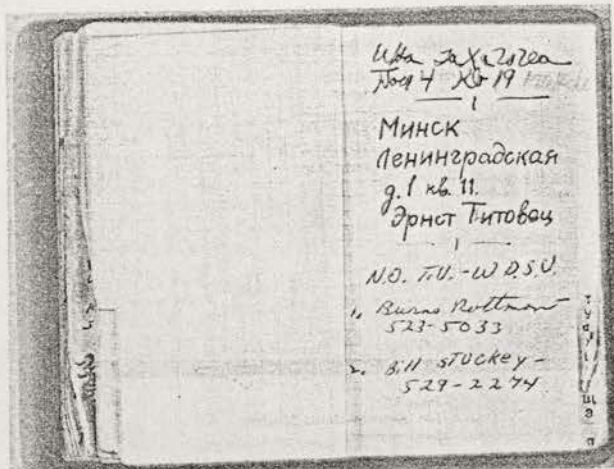 4 кв 19
Минск
Ленинградская
д. 1 кв. 11.
Эрнст Титовец
N.O. T.V. - W D.S.U.
1, Burns Rottman
523-5033
2. Bill STUCKey -
529-2274